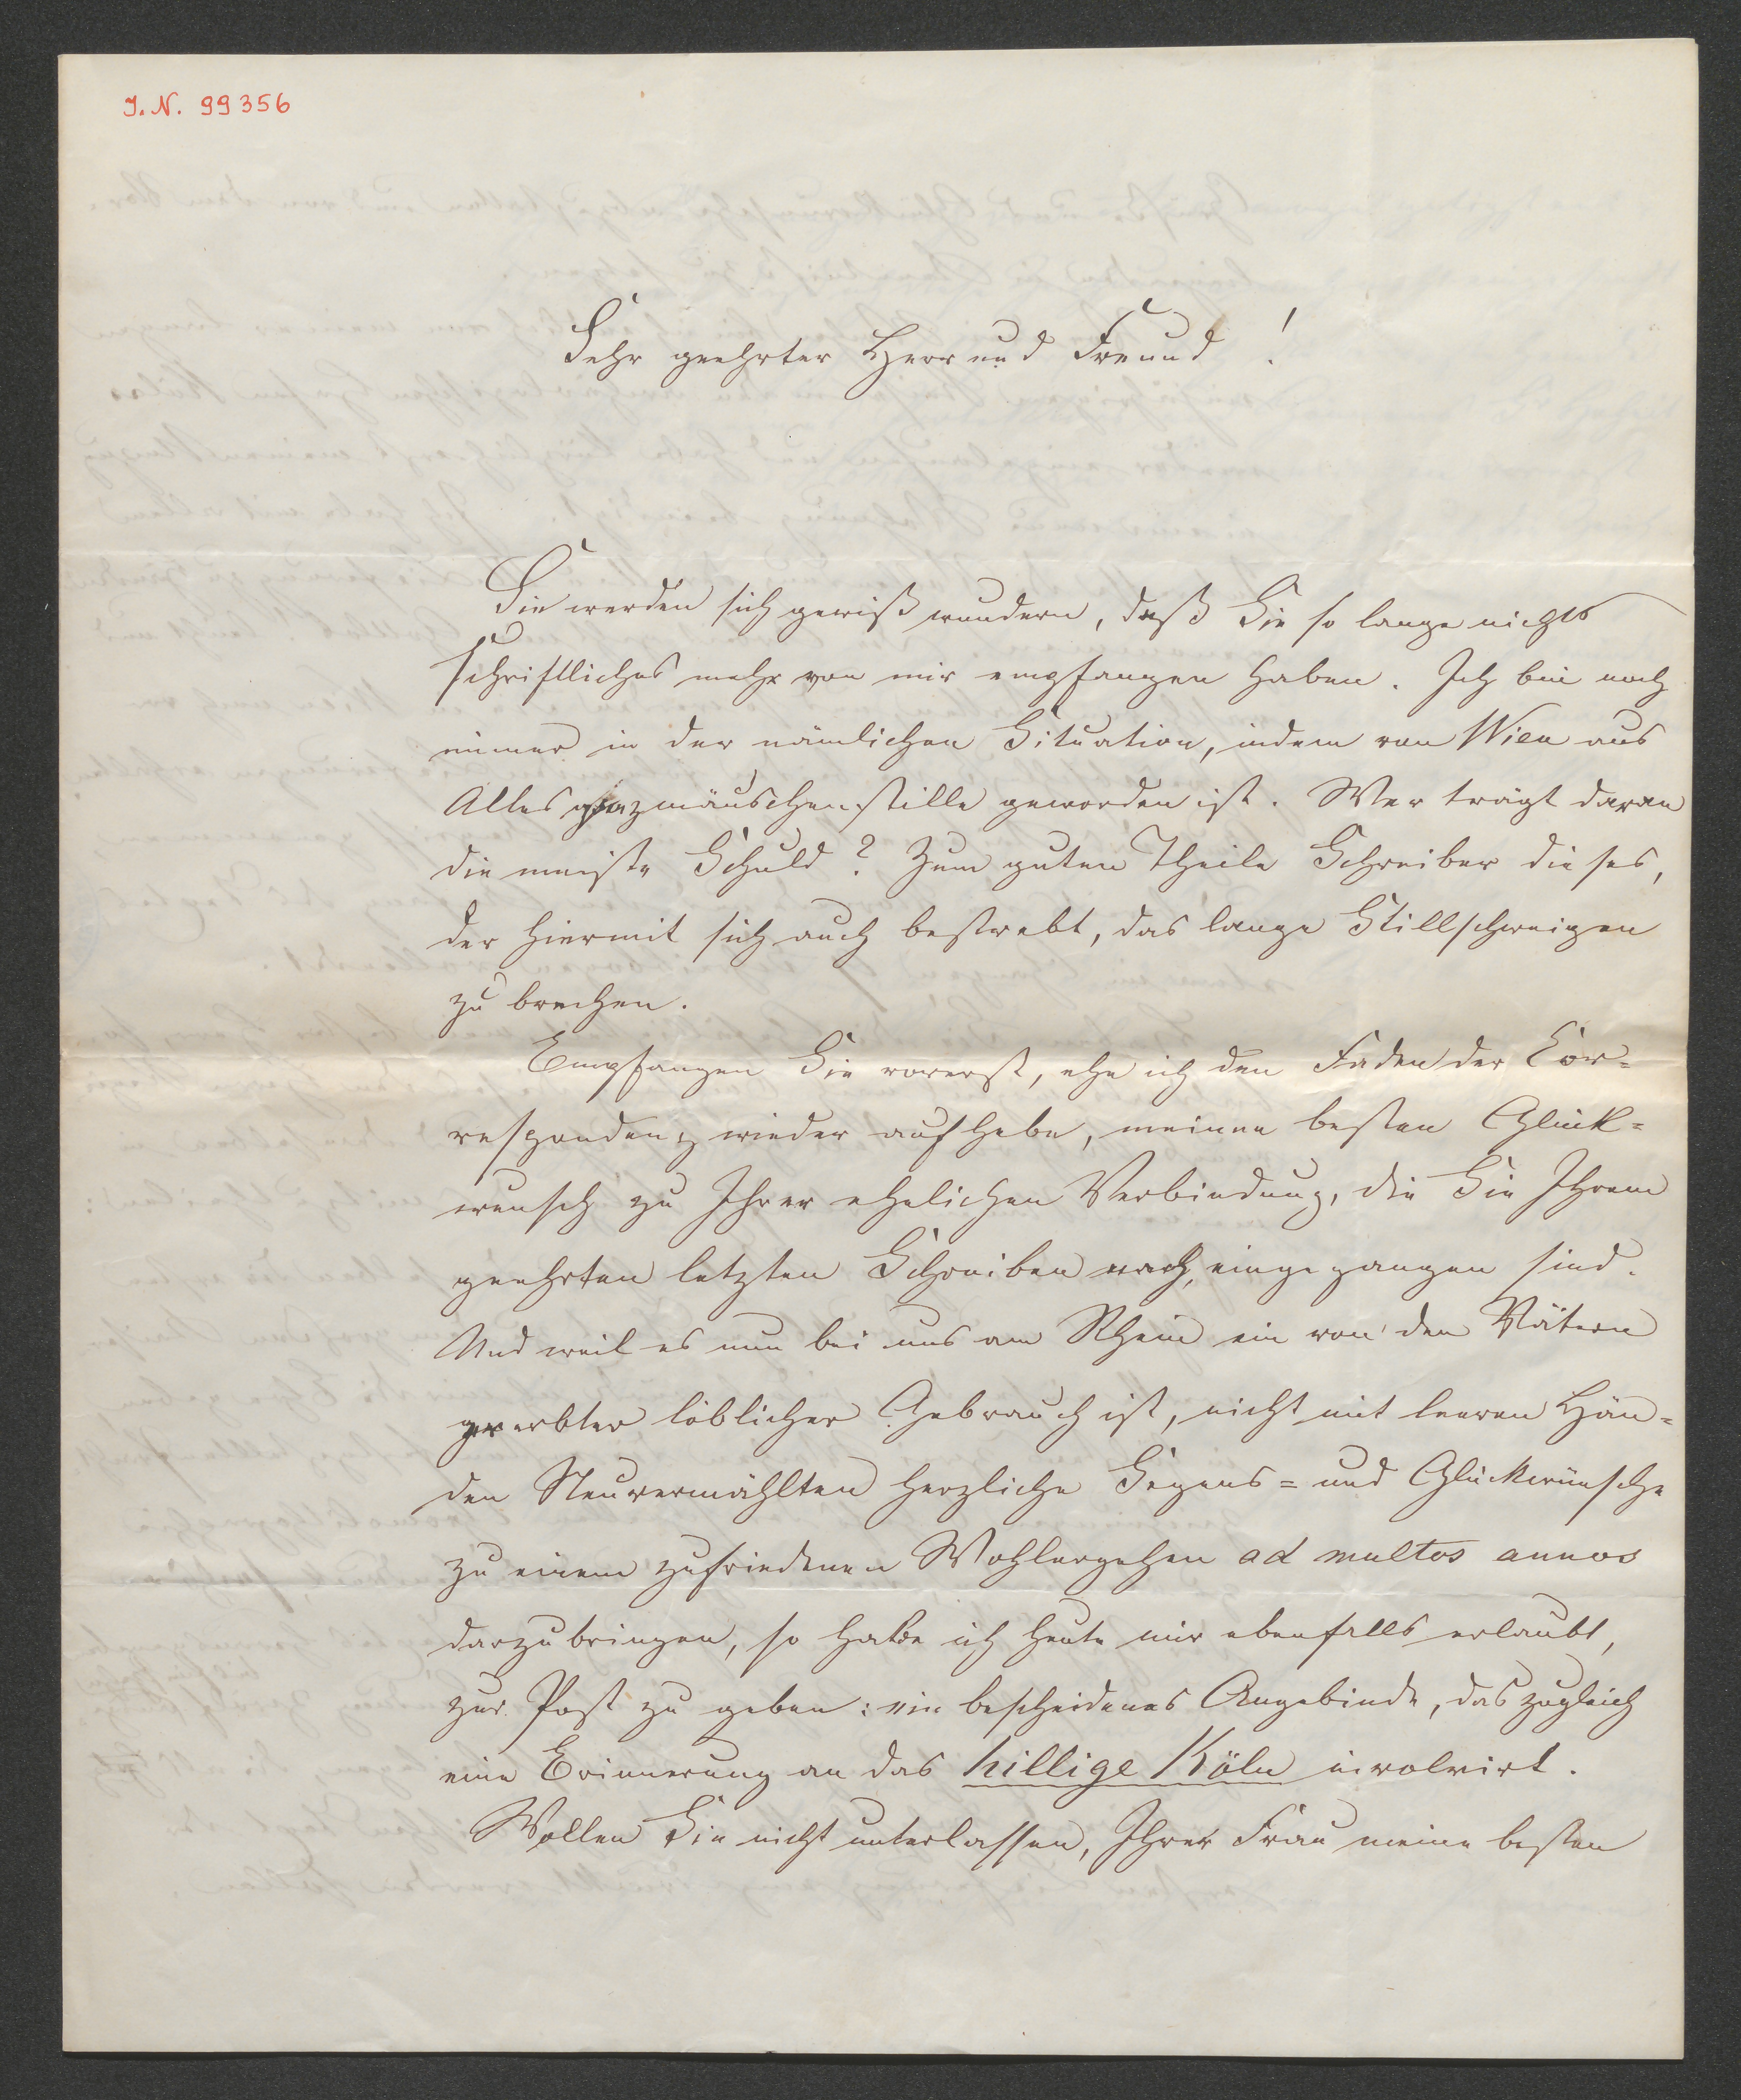 I.N. 99356
Sehr geehrter Herr und Freund!
Sie werden sich gewiß wundern, daß Sie so lange nichts
schriftliches mehr von mir empfangen haben. Ich bin noch
immer in der nämlichen Situation, indem von Wien aus
Alles ganz mäuschenstille geworden ist. Wer trägt daran
die meiste Schuld? Zum guten Theile Schreiber dieses,
der hiermit sich auch bestrebt, das lange Stillschweigen
zu brechen.
Empfangen Sie vorerst, ehe ich den Faden der Cor-
respondenz wieder aufhebe, meinen besten Glück-
wunsch zu Ihrer ehelichen Verbindung, die Sie Ihrem
geehrten letzten Schreiben nach, eingegangen sind.
Und weil es nun bei uns am Rhein ein von den Vätern
geerbter löblicher Gebrauch ist, nicht mit leeren Hän-
den Neuvermählten herzliche Segens- und Glückwünsche
zu einem zufriedenen Wohlergehen ad multos annos
darzubringen, so habe ich heute mir ebenfalls erlaubt,
zur Post zu geben: ein bescheidenes Angebinde, das zugleich
eine Erinnerung an das hillige Köln involvirt.
Wollen Sie nicht unterlassen, Ihrer Frau meine besten